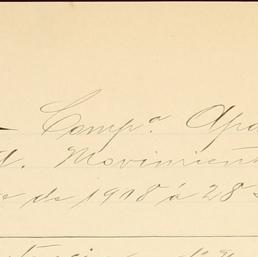 Comp.ª Apa
d. Movimient
e de 1908 á 28